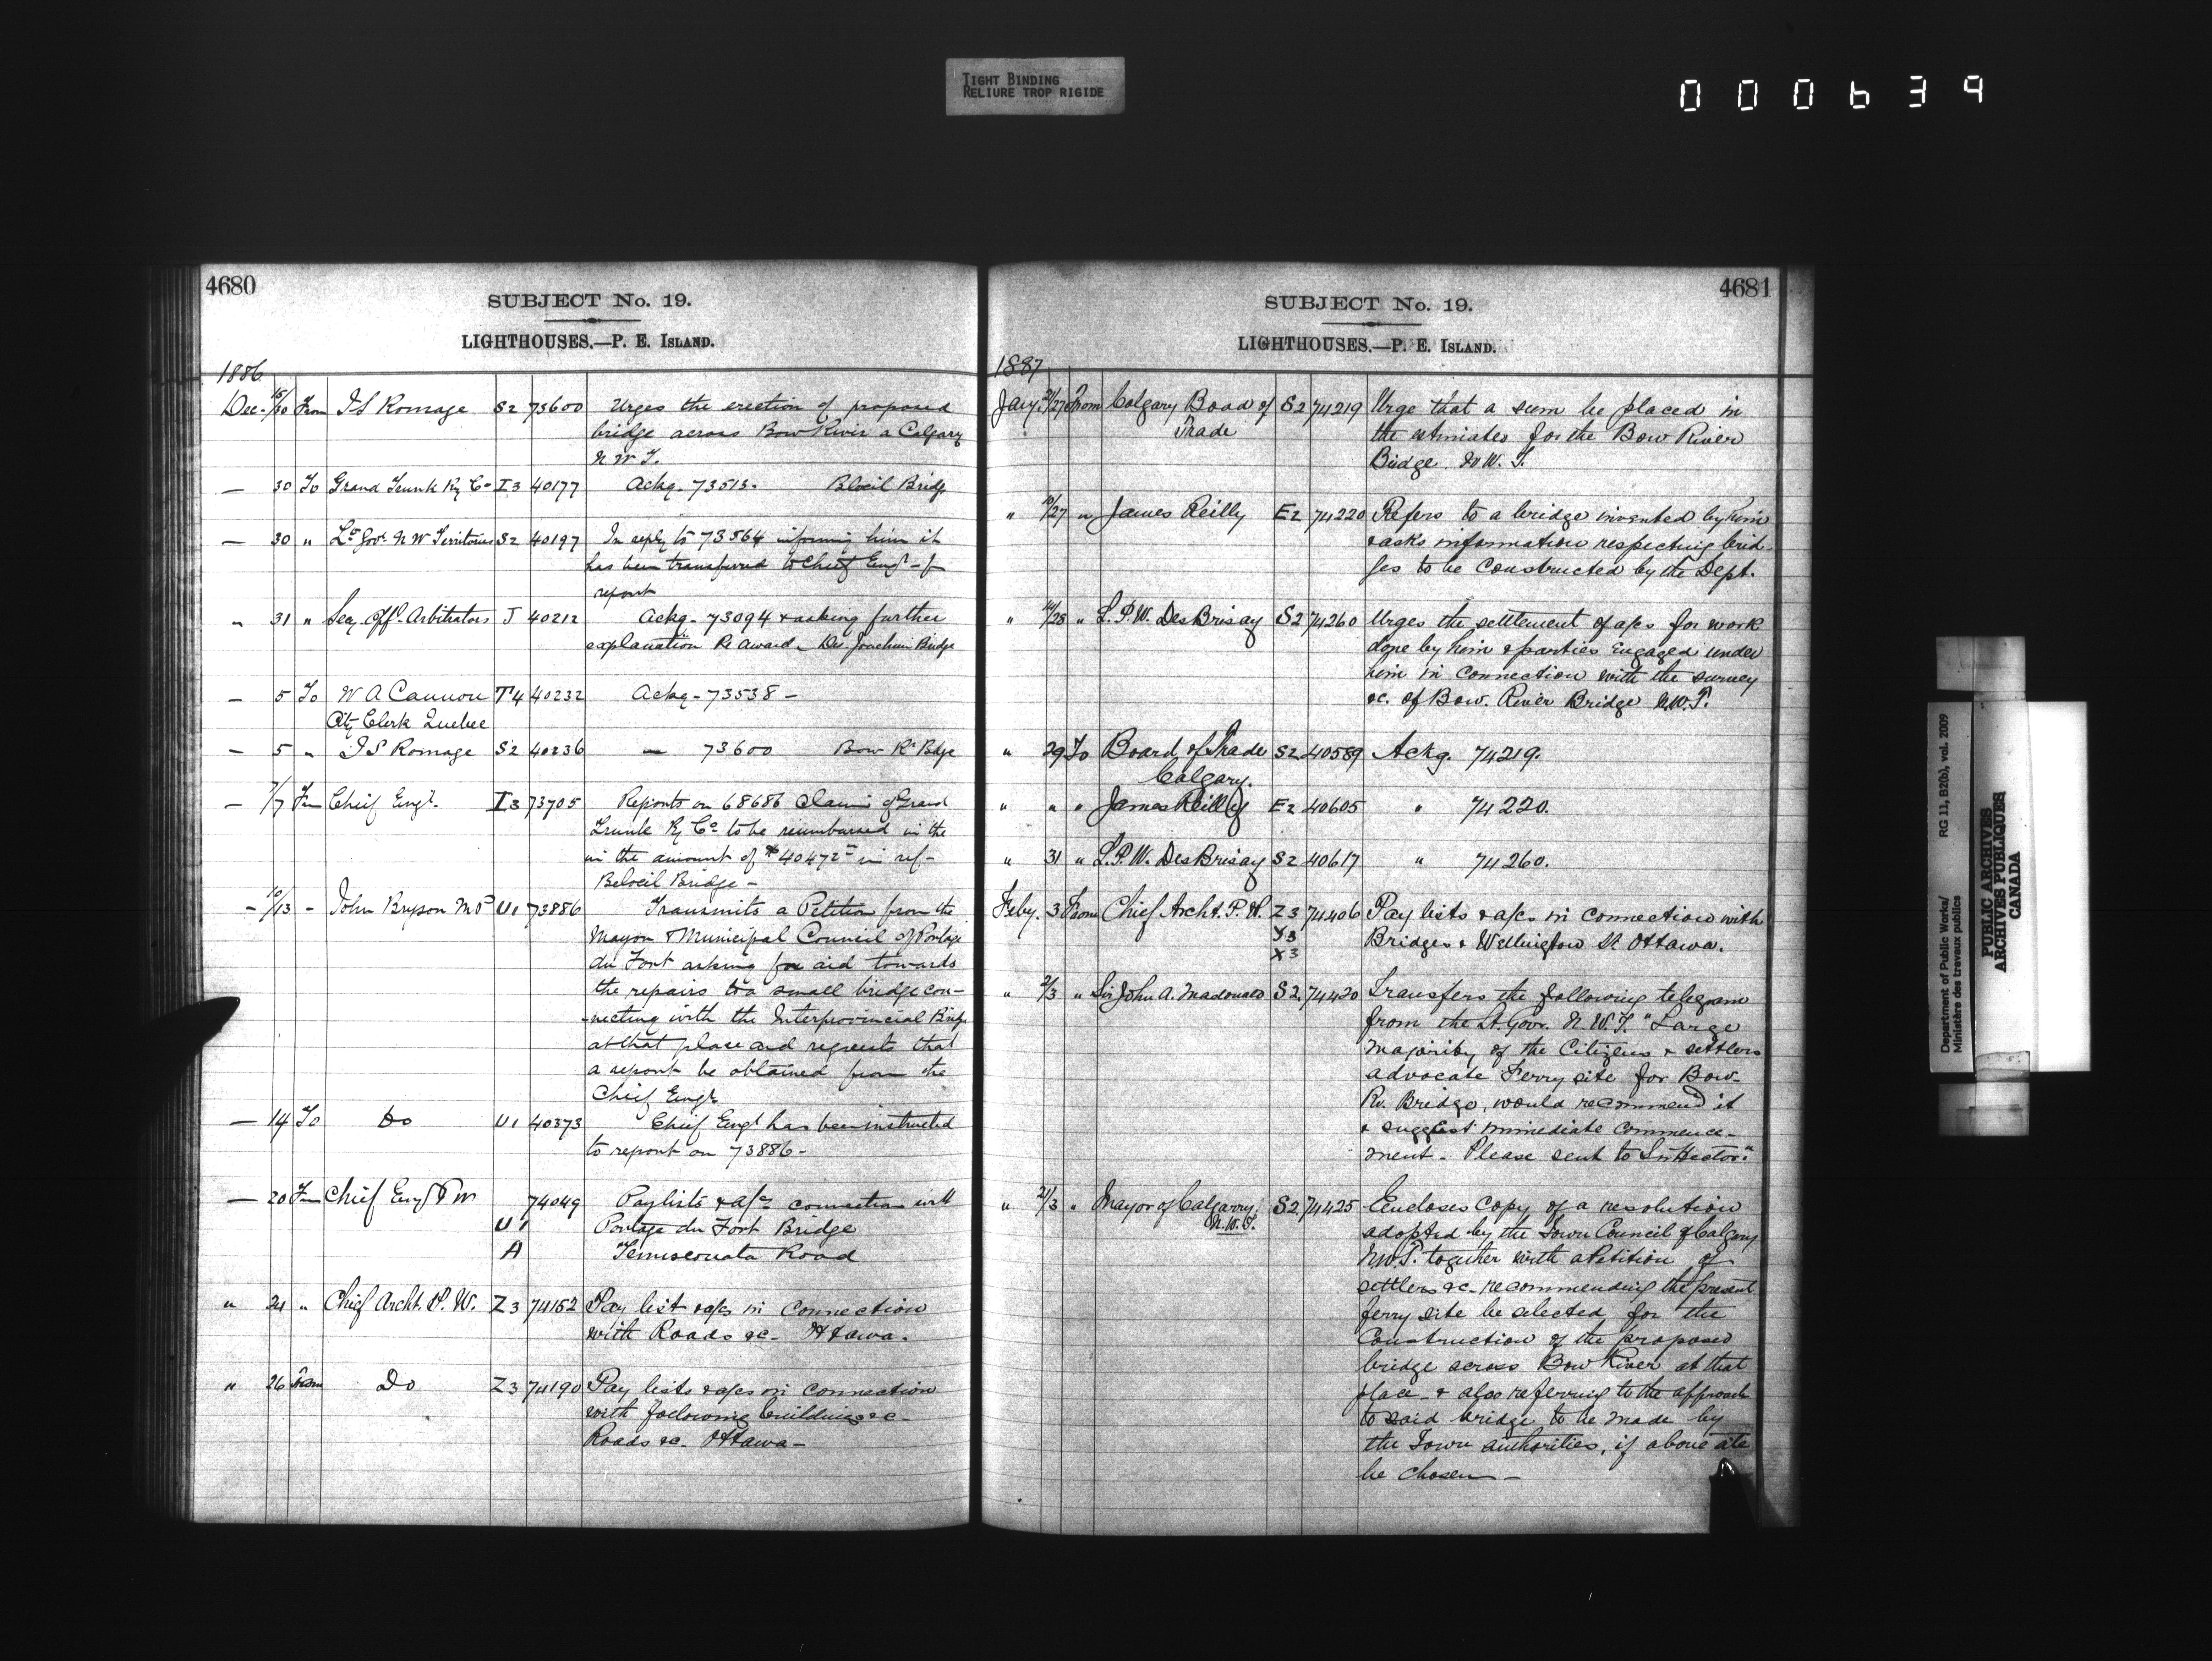 TIGHT BINDING
RELIURE TROP RIGIDE
000639
4680
SUBJECT No. 19.
LIGHTHOUSES.—P. E. ISLAND.
1886
Dec. 15/30 From I S Romage S2 73600 Urges the erection of proposed
bridge across Bow River a Calgary
N W T.
— 30 To Grand Trunk Ry Co I3 40177 Ackg. 73513. Bloeil Bridge
— 30 " Lt Govr N W Territories S2 40197 In reply to 73564 informing him it
has been transferred to Chief Engr - for
report
" 31 " Secy Offl Arbitrators J 40212 Ackg. 73094 & asking further
explanation Re award - Des Joachim Bridge
— 5 To W A Cannon T4 40232 Ackg - 73538 -
City Clerk Quebec
— 5 " I S Romage S2 40236 — 73600 Bow Rr Bdge
— 7/7 Fm Chief Engr. I3 73705 Reports on 68686 Claim of Grand
Trunk Ry Co to be reimbursed in the
in the amount of $40472 in ref-
Beloeil Bridge -
- 10/13 - John Bryson MP U1 73886 Transmits a Petition from the
Mayor & Municipal Council of Portage
du Fort asking for aid towards
the repairs to a small bridge con-
-necting with the Interprovincial Bridge
at that place and requests that
a report be obtained from the
Chief Engr
— 14 To Do U1 40373 Chief Engr has been instructed
to report on 73886 -
— 20 Fm Chief Engr P W 74049 Paylists & a/cs connection with
U1 Portage du Fort Bridge
A Temiscouata Road
" 24 " Chief Archt. P. W. Z3 74152 Pay list & a/cs in connection
with Roads &c - Ottawa.
" 26 From Do Z3 74190 Pay lists & a/cs in connection
with following buildings &c -
Roads &c. Ottawa -
4681
SUBJECT No. 19.
LIGHTHOUSES.—P. E. ISLAND.
1887
Jany. 21/27 From Calgary Boad of S2 74219 Urge that a sum be placed in
Trade the estimates for the Bow River
Bridge. N W. T.
" /27 " James Reilly E2 74220 Refers to a bridge invented by him
& asks information respecting brid-
ges to be constructed by the Dept.
" /28 " L. P. W. DesBrisay S2 74260 Urges the settlement of a/cs for work
done by him & parties engaged under
him in connection with the survey
&c. of Bow. River Bridge N.W.T.
" 29 To Board of Trade S2 40589 Ackg. 74219.
Calgary.
" " " James Reilly E2 40605 " 74220.
" 31 " L. P. W. DesBrisay S2 40617 " 74260.
Feby. 3 From Chief Archt. P. W. Z3 74406 Pay lists & a/cs in connection with
Y3 Bridges & Wellington St Ottawa.
X3
" 2/3 " Sir John A. Macdonald S2. 74420 Transfers the following telegram
from the Lt. Govr. N. W. T. "Large
majority of the Citizens & settlers
advocate Ferry site for Bow-
Rv. Bridge, would recommend it
& suggest immediate commence-
ment. Please sent to Sir Hector."
" 21/3 " Mayor of Calgarry. S2 74425 Encloses Copy of a resolution
N. W. T. adopted by the Town Council of Calgary
N.W.T. together with a Petition of
settlers &c. recommending the present
ferry site be selected for the
Construction of the proposed
bridge across Bow River at that
place & also referring to the approach
to said bridge to be made by
the Town authorities, if above site
be chosen —
Department of Public Works/
Ministère des travaux publics
RG 11, B2(b), vol. 2009
PUBLIC ARCHIVES
ARCHIVES PUBLIQUES
CANADA